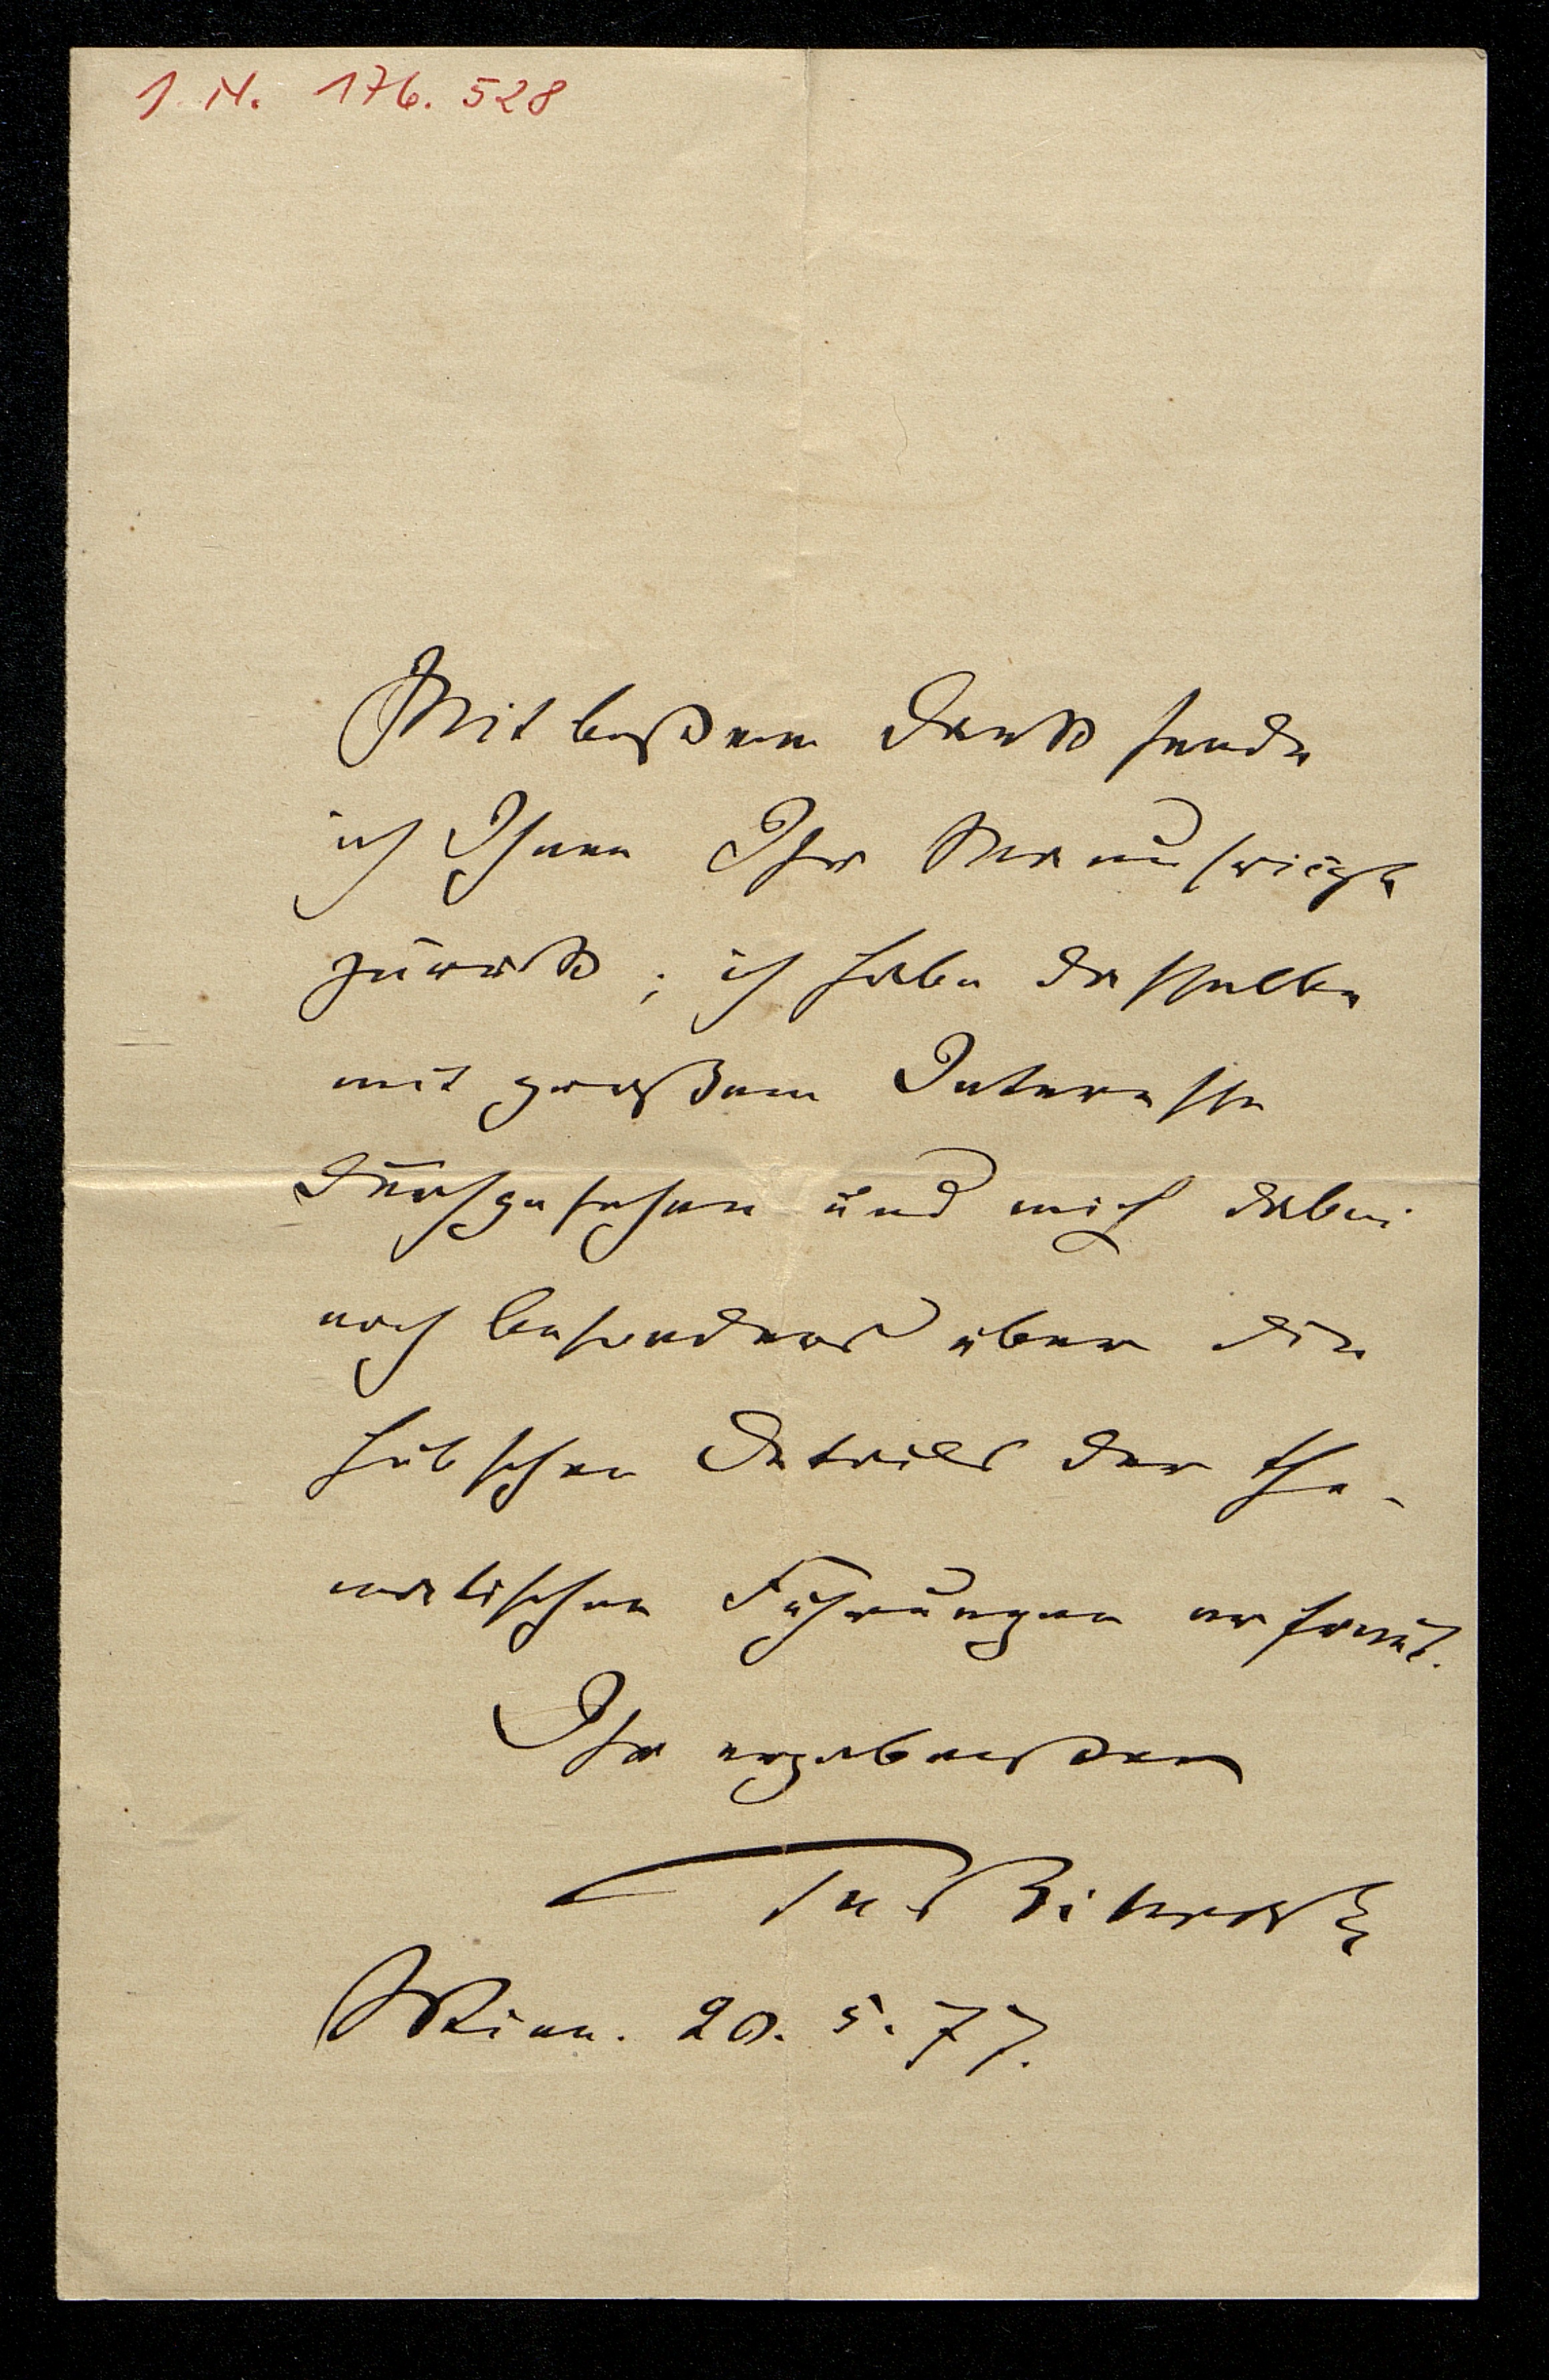 J. N. 176.528
Mit bestem Dank sende
ich Ihnen Ihr Manuscript
zurück; ich habe dasselbe
mit großem Interesse
durchgesehen und mich dabei
noch besonders über die
hübschen Details der the-
matischen Führungen erfreut.
Ihr ergebenster
Th Billroth
Wien. 20. 5. 77.